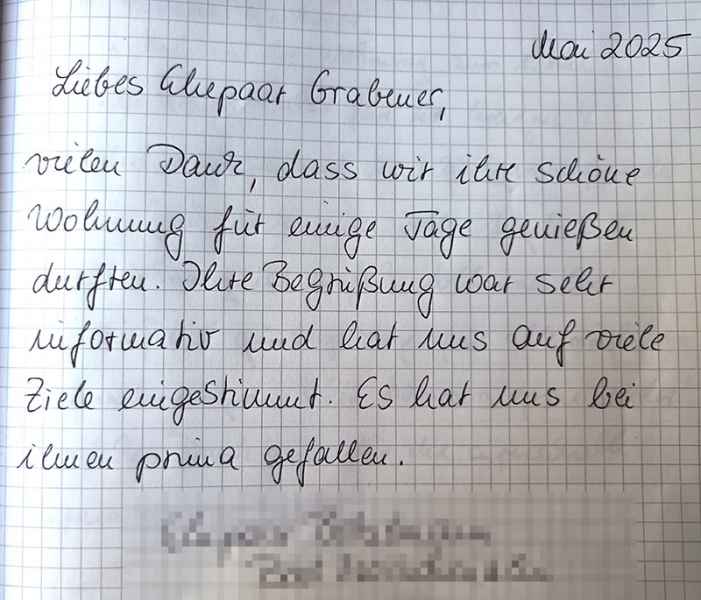 Mai 2025
Liebes Ehepaar Grabener,
vielen Dank, dass wir ihre schöne
Wohnung für einige Tage genießen
durften. Ihre Begrüßung war sehr
informativ und hat uns auf viele
Ziele eingestimmt. Es hat uns bei
ihnen prima gefallen.